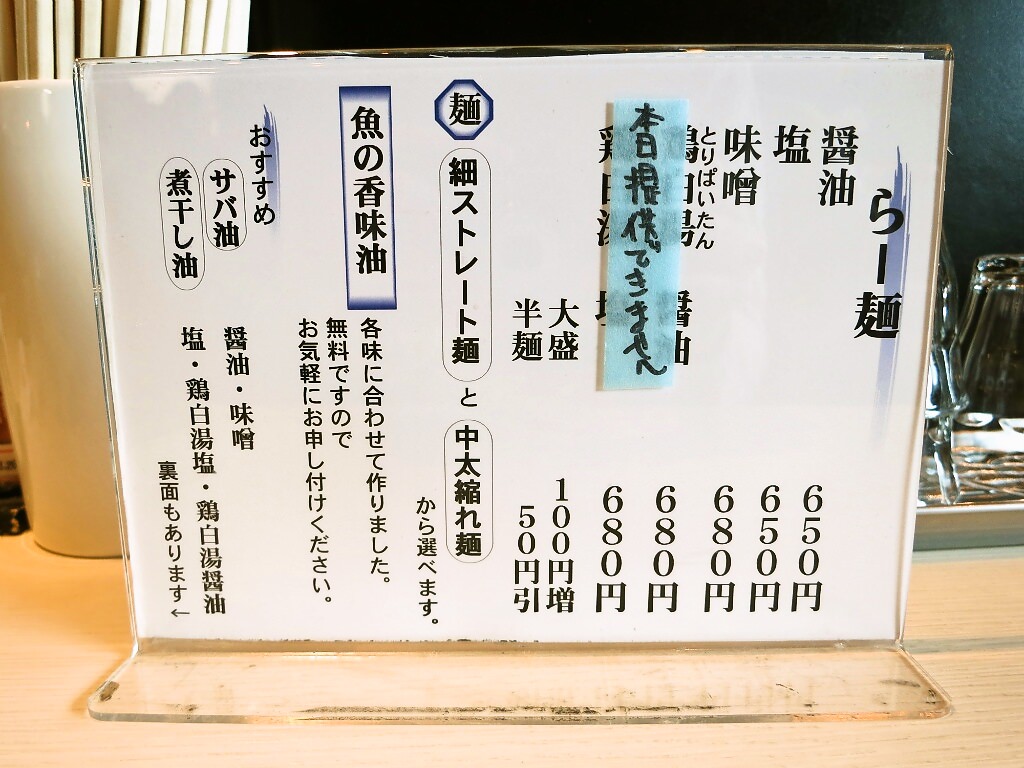 らー麺
醤油 650円
塩 650円
味噌 680円
とりぱいたん
鶏白湯 醤油 680円
鶏白湯 塩 680円
本日提供できません
大盛 100円増
半麺 50円引
麺 細ストレート麺 と 中太縮れ麺
から選べます。
魚の香味油
各味に合わせて作りました。
無料ですので
お気軽にお申し付けください。
おすすめ
サバ油 醤油・味噌
煮干し油 塩・鶏白湯塩・鶏白湯醤油
裏面もあります←